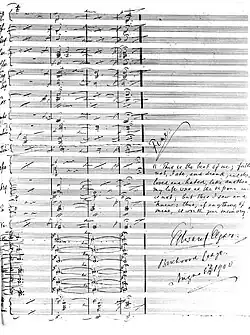 Fine
This is the best of me; for the
rest, I ate, and drank, and slept,
loved and hated, like another
my life was as the vapour and
is not; but this I saw and
knew: this, if anything of
mine, is worth your memory.
Edward Elgar
Birchwood Lodge.
1900